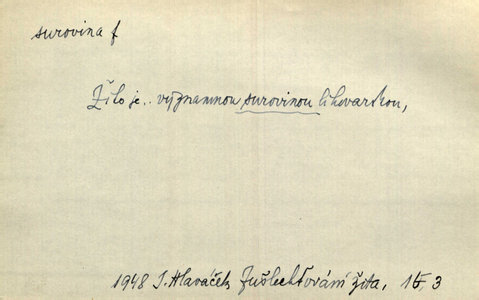 surovina f
Žito je.. významnou surovinou lihovarskou,
1948 J. Hlaváček Zušlechťování žita, 3